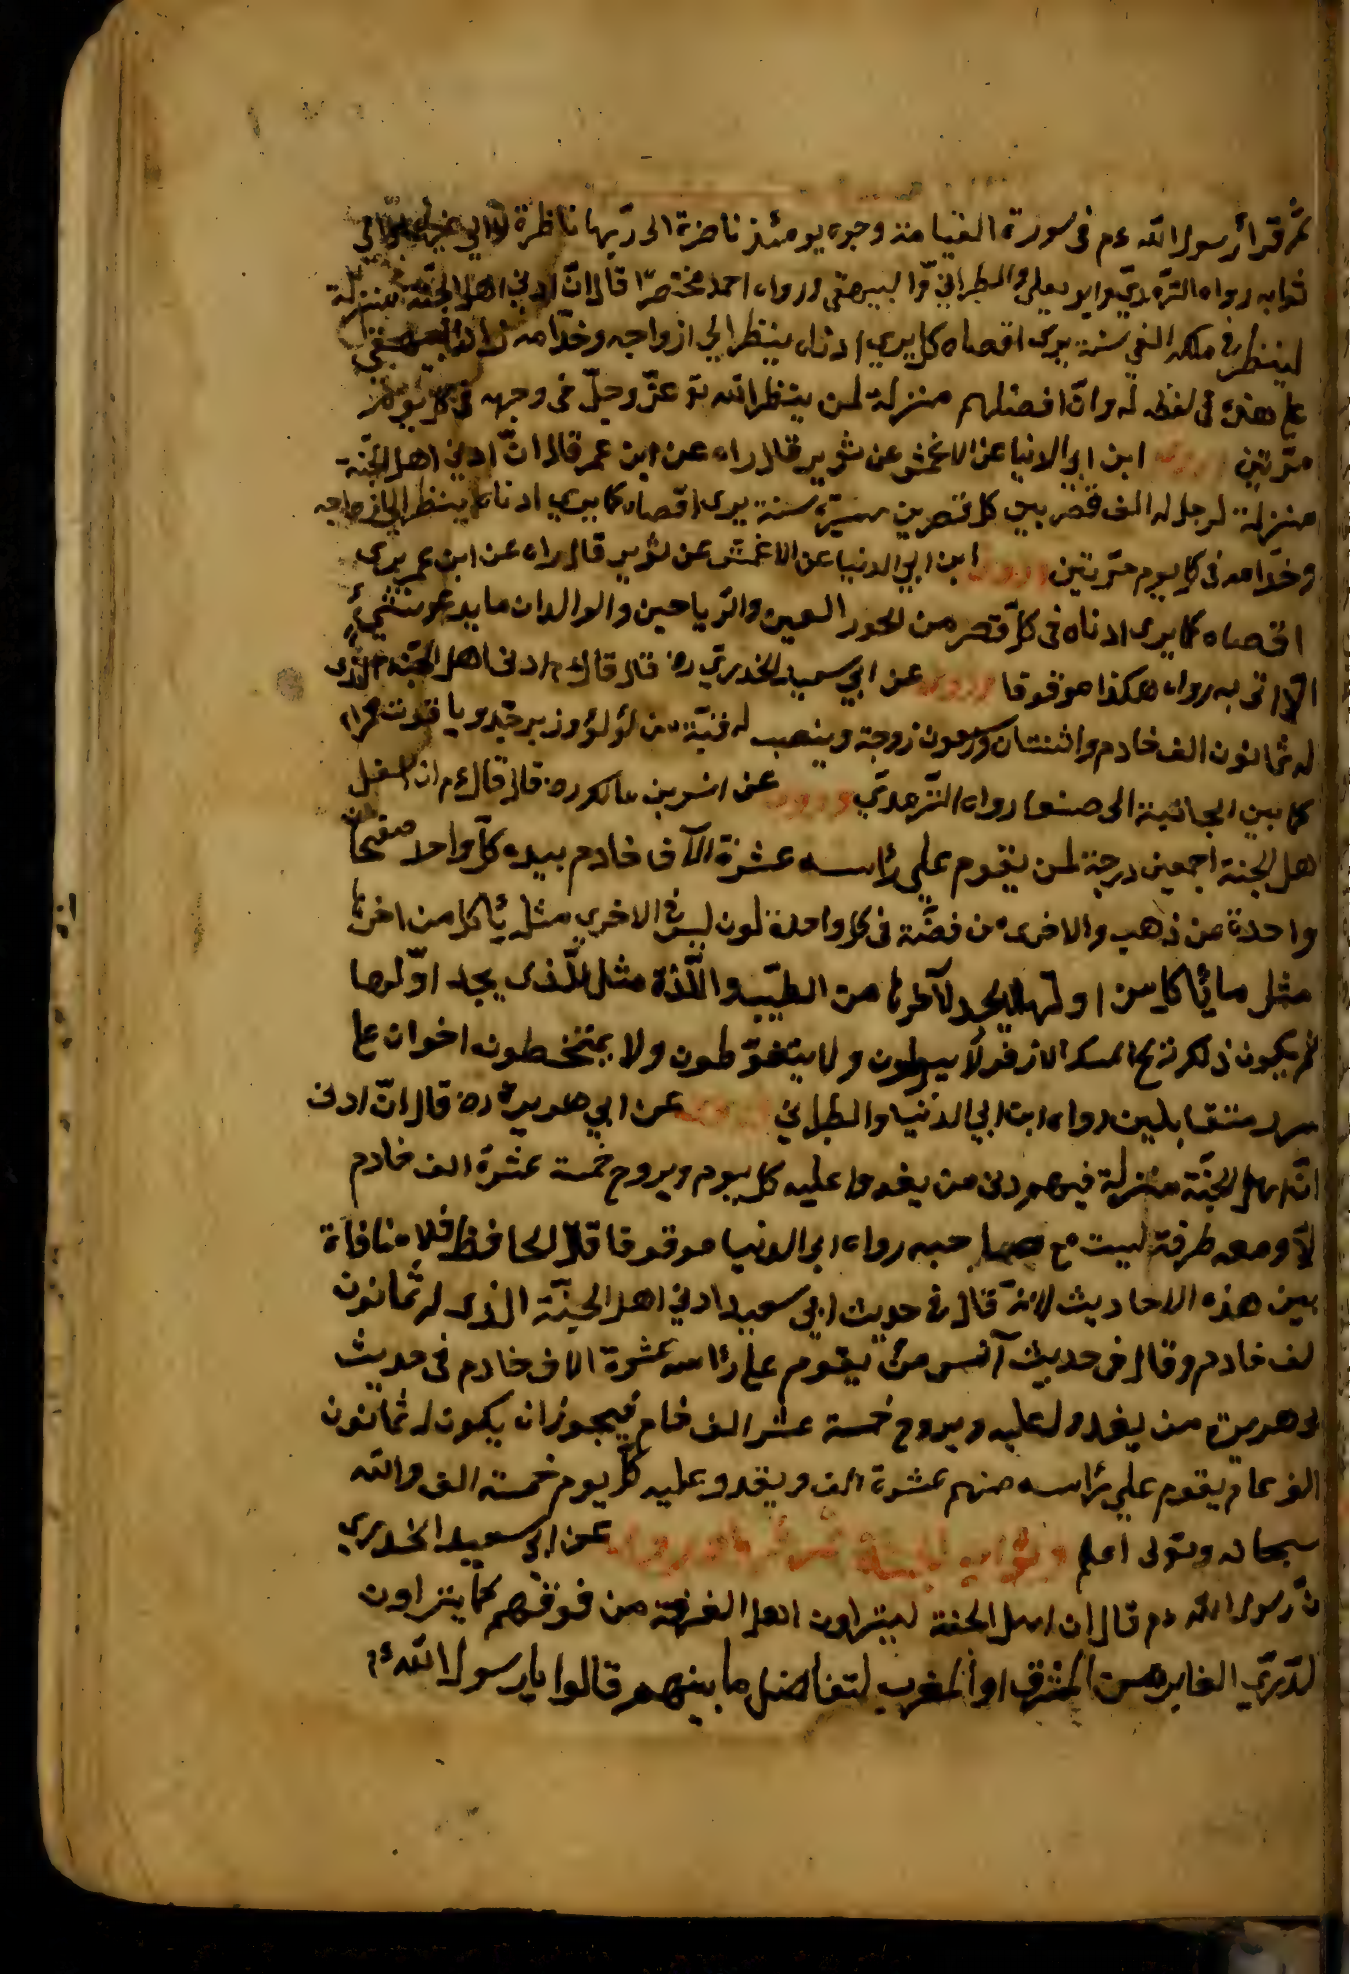 ثمّ قرأ رسول الله عم فى سورة القيامة وجوه يومئذ ناضرة الى ربّها ناظرة
ثوابه رواه الترمديّ وابو يعلي والطبراني والبيهقي ورواه احمد مختصرا قال انّ ادنى اهل الجنّة منزلة
لينظر في ملكه الفي سنة يرى اقصاه كما يري ادناه ينظر الي ازواجه وخدّامه زاد البيهقي
علي هذا فى لفظه له وانّ افضلهم منزلة لمن ينظر الله تع عزّ وجلّ فى وجهه فى كل يوم
مرّتين وروى ابن ابي الدنيا عن الاعمش عن ثوير قال راه عن ابن عمر قال انّ ادني اهل الجنّة
منزلة لرجل له الف قصر بين كل قصرين مسيرة سنة يرى اقصاه كما يري ادناه ينظر الي ازواجه
وخدّامه فى كل يوم مرّتين وروى ابن ابي الدنيا عن الاعمش عن ثوير قال راه عن ابن عمر يرى
اقصاه كما يرى ادناه فى كلّ قصر من الحور العين والرياحين والوالدان ما يدعو بشيءٍ
الّا اتى به رواه هكذا موقوفا وروى عن ابي سعيد الخدريّ رض قال قال عم ادنى اهل الجنّة الّذى
له ثمانون الف خادم واثنتان وسبعون زوجة وينصب له قبّة من لؤلؤ وزبرجد وياقوت
كما بين الجابية الى صنعا رواه التّرمديّ وروى عن انس بن مالك رض قال قال عم ان اسفل
هل الجنة اجمعين درجة لمن يقوم علي رأسه عشرة الآف خادم بيده كلّ واحد صفحتان
واحدة من ذهب والاخرى من فضّة فى كل واحدة لون ليس في الاخري مثله يأكل من اخرها
مثل ما يأكل من اولها يجد لآخرها من الطيّب واللّذة مثل الّذى يجد اوّلها
ثم يكون ذلك ريح المسك الاذفر لا يبولون ولا يتغوّطون ولا يمتخطون اخوان على
سرر متقابلين رواه ابن ابي الدنيا والطبراني وروى عن ابي هريرة رض قال انّ ادنى
اهل الجنّة منزلة فيهم دنى من يغدوا عليه كل يوم ويروح خمسة عشرة الف خادم
لا ومعه طرفة ليست مع صاحبه رواه ابي الدنيا موقوفا قال الحافظ فلا منافاة
بين هذه الاحاديث لانّه قال في حديث ابي سعيد ادني اهل الجنّة الذى له ثمانون
لف خادم وقال فى حديث آنس من يقوم على رأسه عشرة الاف خادم فى حديث
بى هريرة من يغدو له عليه ويروح خمسة عشر الف خام فيجوز ان يكون له ثمانون
الف خادم يقوم علي رأسه منهم عشرة الف ويغدو عليه كلّ يوم خمسة الف والله
سبحانه وتعالى اعلم عن ابي سعيد الخدري
نّ رسول الله عم قال ان اهل الجنة ليتراون اهل الغرفة من فوقهم كما يتراون
لدّرّي الغابر من المشرق او المغرب لتفاضل ما بينهم قالوا يا رسول الله عم